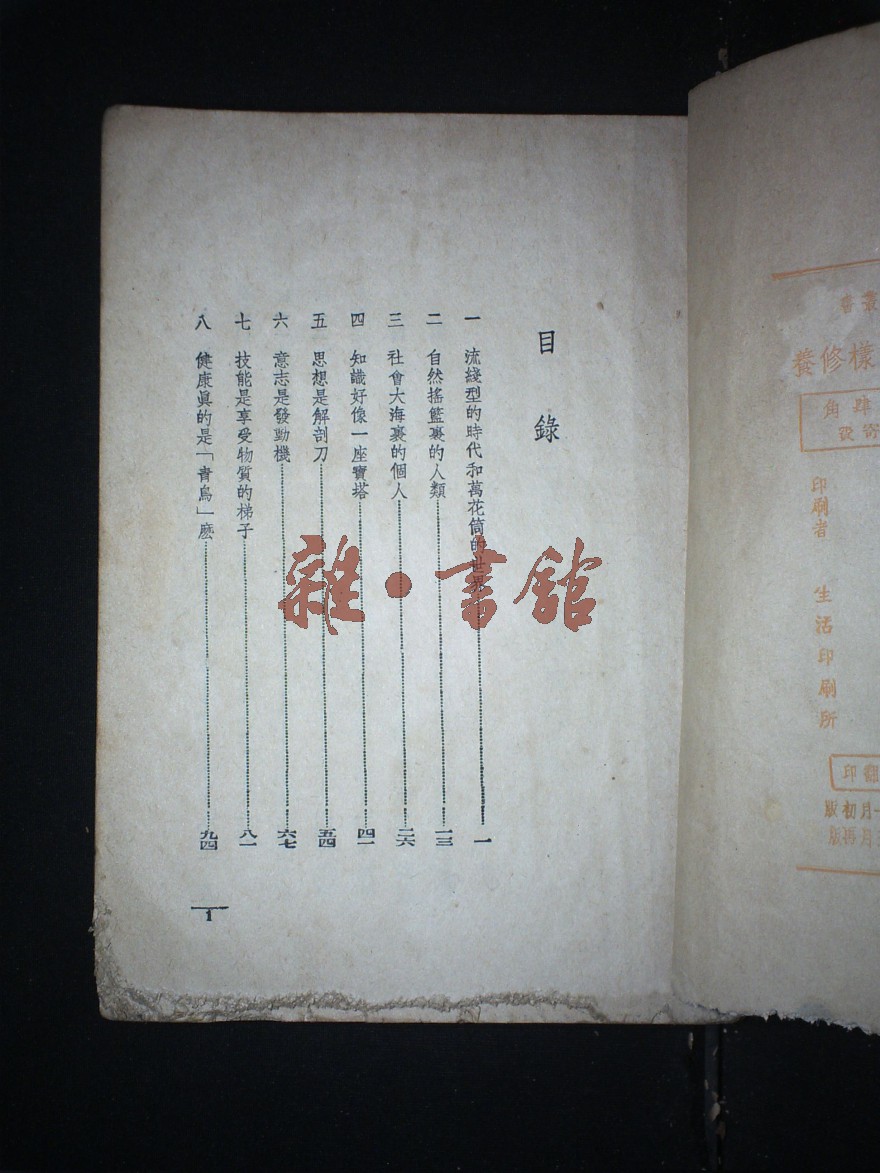 目錄
一 流綫型的時代和萬花筒的世界 一
二 自然搖籃裏的人類 一三
三 社會大海裏的個人 二六
四 知識好像一座寶塔 四一
五 思想是解剖刀 五四
六 意志是發動機 六七
七 技能是享受物質的梯子 八一
八 健康眞的是「靑鳥」麽 九四
1
雜·書館
叢書
樣修養
肆角
寄費
印刷者
生活印刷所
翻印
一月初版
月再版